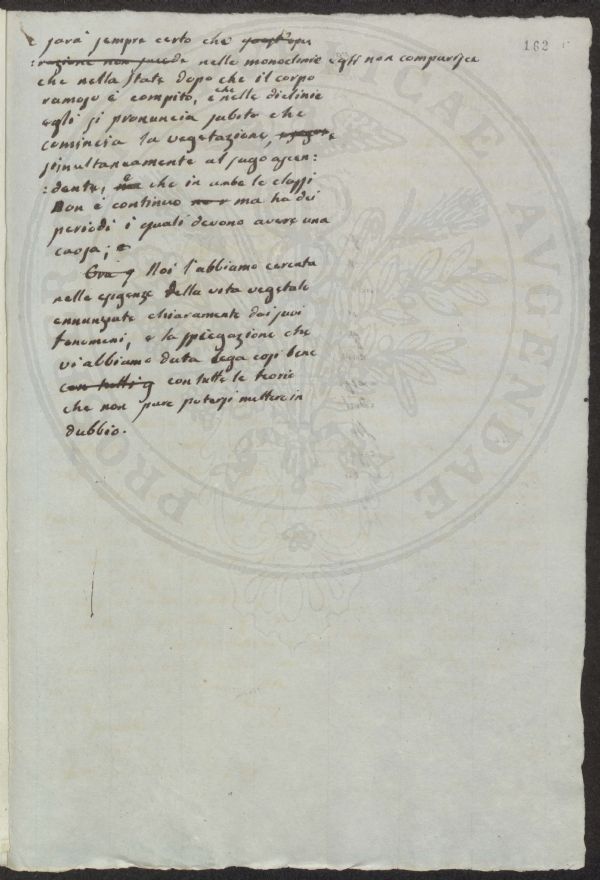 162
e sarà sempre certo che quest'ope
:razione non succede nelle monoclinie egli non comparisce
che nella state dopo che il corpo
ramoso è compito, e che nelle diclinie
egli si pronuncia subito che
comincia la vegetazione, e
simultaneamente al sugo ascen:
:dente, e che in anbe le classi
non è continuo ma ha dei
periodi i quali devono avere una
causa;
Noi l'abbiamo cercata
nelle esigenze della vita vegetale
annunziate chiaramente dai suoi
fenomeni, e la spiegazione che
vi abbiamo data lega così bene
con tutti g con tutte le teorie
che non pare potersi mettere in
dubbio.
PRO AUGENDAE